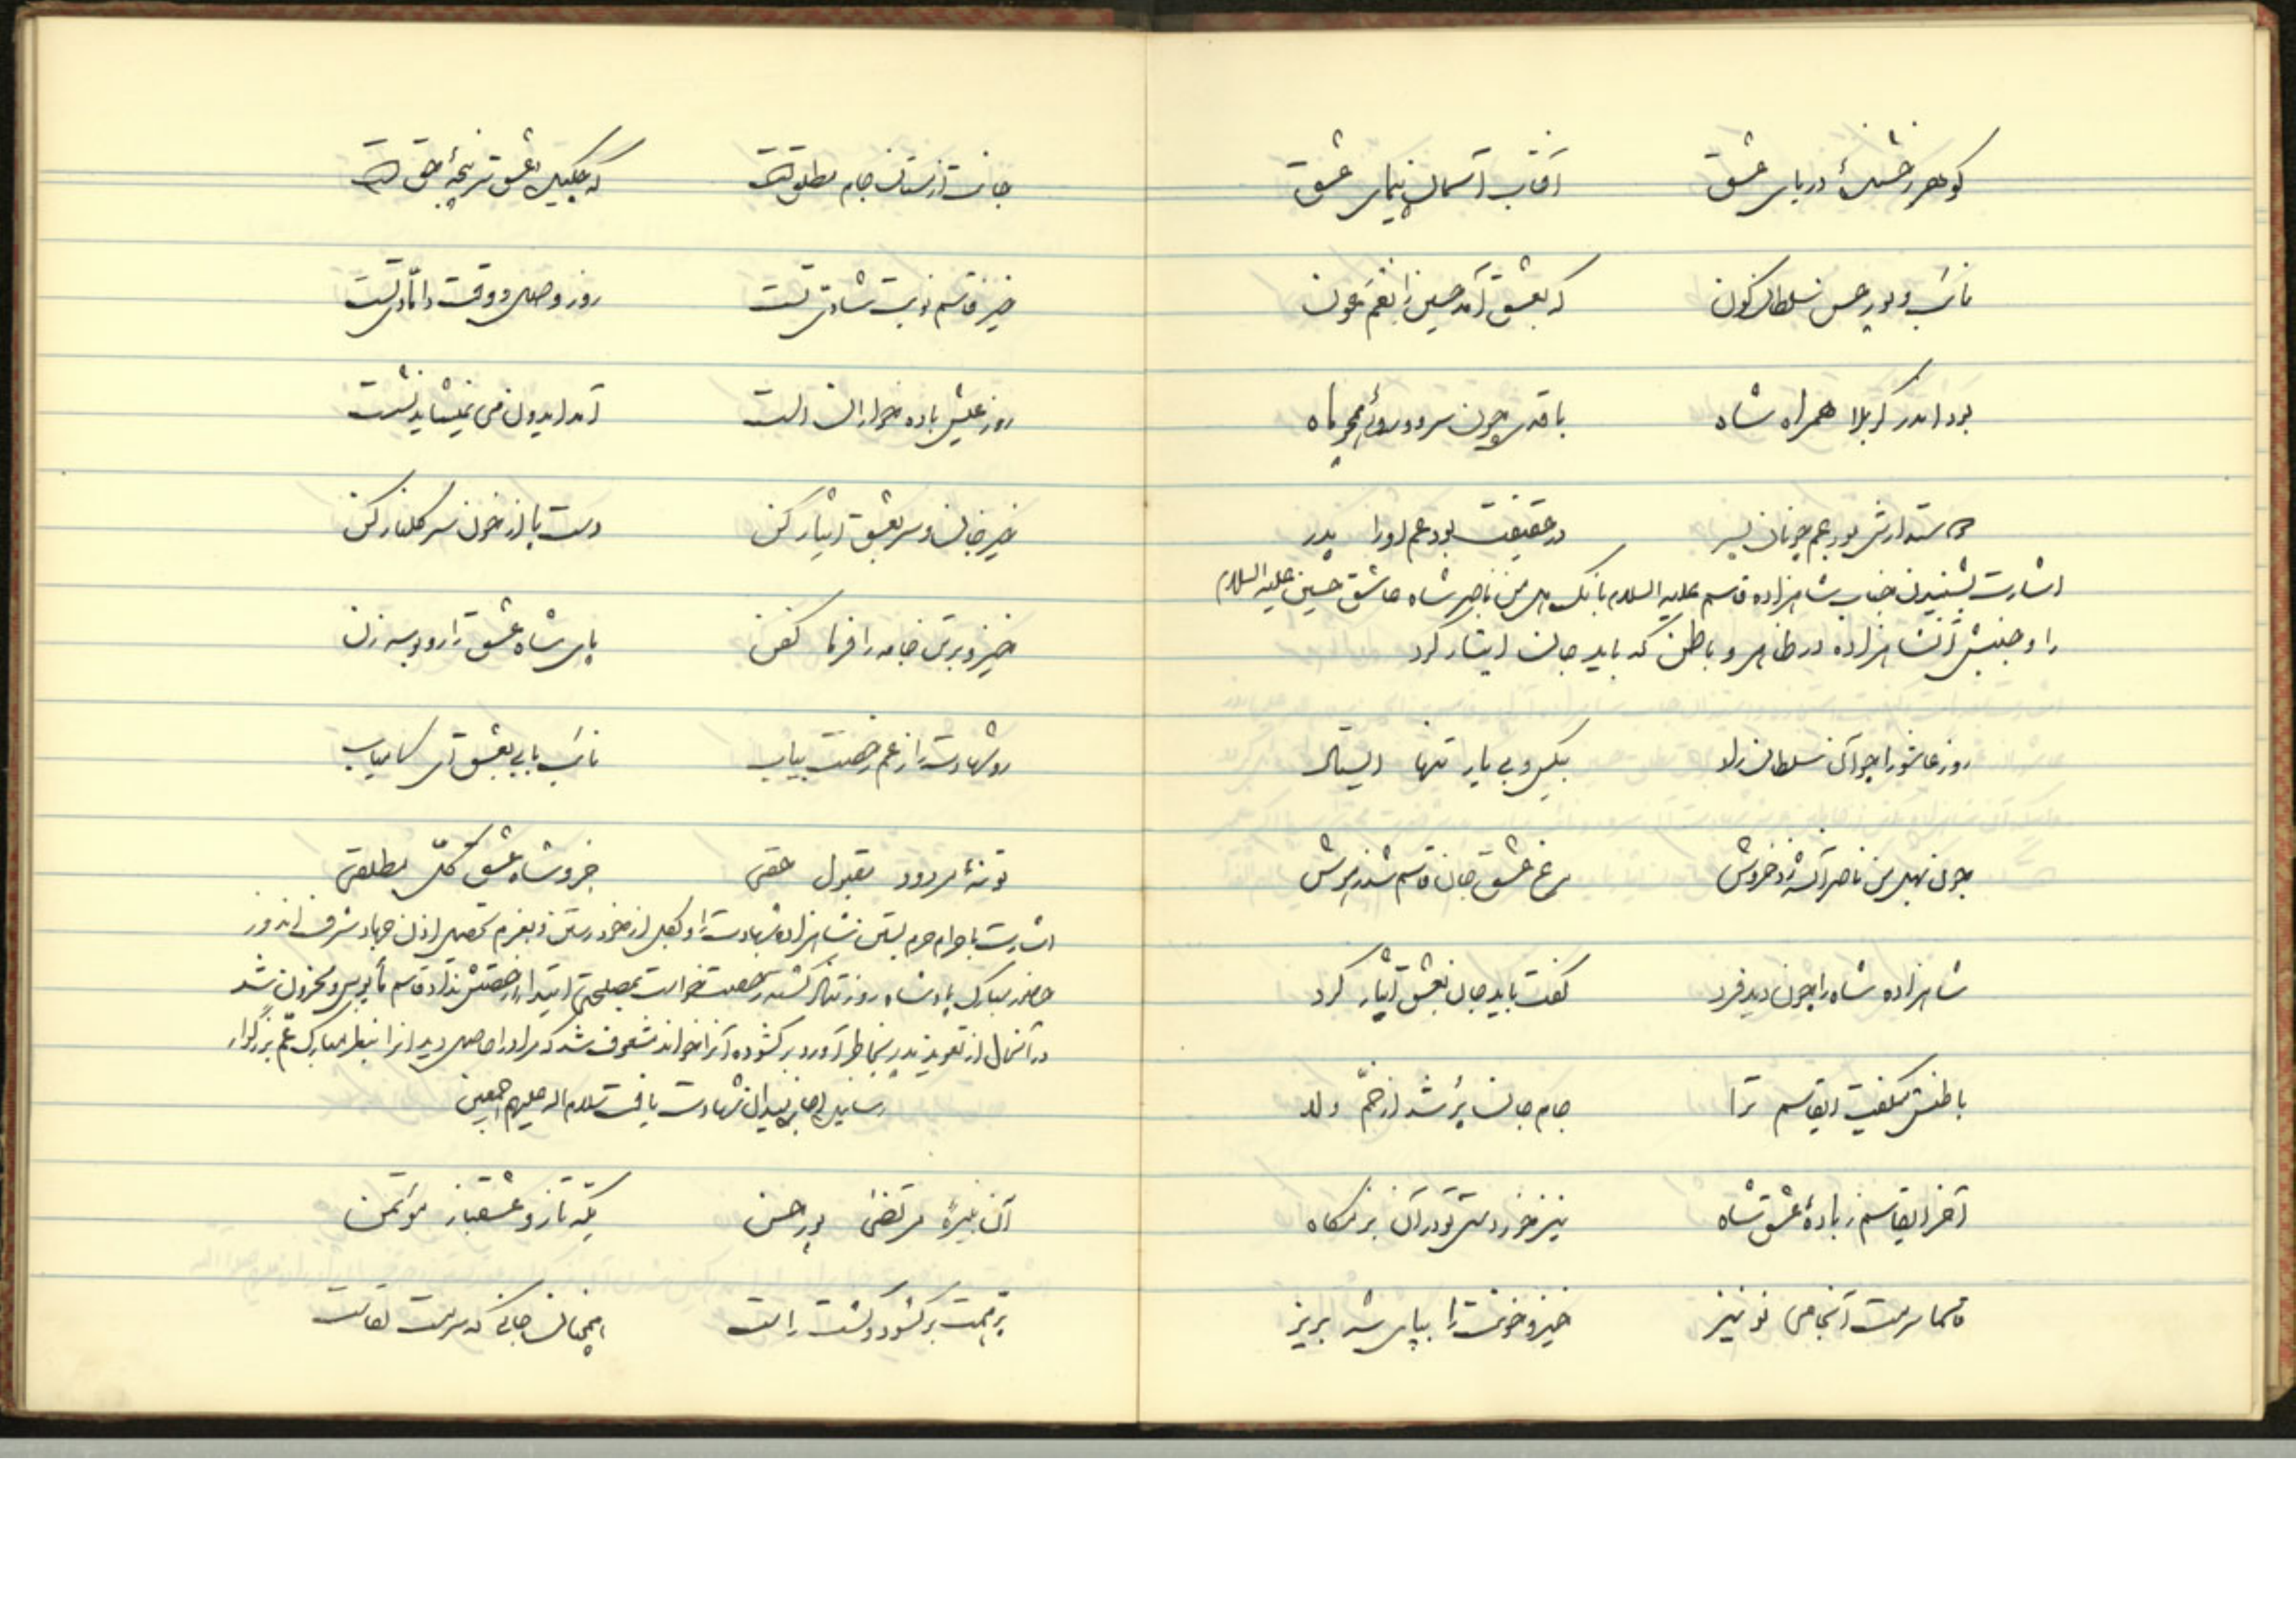 گوهر رخشندهٔ دریای عشق آفتاب آسمان پیمای عشق
نائب و پور حسن سلطان کون که بعشق آمد حسین را بغم عون
بود اندر کربلا همراه شاه با قدی چون سرو و روئی همچو ماه
دوستدارش بود عم چونان پسر در حقیقت بود عم او را پدر
اشارت بشنیدن جناب شاهزاده قاسم علیه السلام بانگ هل من ناصر شاه عاشق حسین علیه السلام
را و جنبش آن شاهزاده در ظاهر و باطن که باید جان ایثار کرد
روز عاشورا چو آن سلطان لا بیکس و بی یار تنها ایستاد
چون بهل من ناصر آن شه زد خروش مرغ عشق جان قاسم شد بهوش
شاهزاده شاه را چون دید فرد گفت باید جان بعشق ایثار کرد
باطنش میگفت ایقاسم ترا جام جان پر شد از خمّ ولا
آخر ایقاسم ز بادهٔ عشق شاه نیز خوردستی تو در آن بزمگاه
قاسما سرمست آنجامی تو نیز خیز و خونت را بپای شه بریز
جانت از مستان جام مطلق است که بجنگیدن عشق سرپنجهٔ حق است
خیز قاسم نوبت شادی تست روز وصل و وقت دامادی تست
روز عیش باده خواران الست آمد ایدون می نمیشاید نشست
خیز جان و سر بعشق ایثار کن دست و پا از خون سر گلنار کن
خیز و بر تن جامه را فرما کفن پای شاه عشق را رو بوسه زن
رو شهادت را ز عم رخصت بیاب نائب بابی بعشق آی کامیاب
تو نهٔ مردود مقبول حقی جزو شاه عشق کلّ مطلقی
اشارت باحرام حرم بستن شاهزاده شهادت را و بکل از خود رستن و بعزم تحصیل اذن جهاد شرف اندوز
حضور مبارک پادشاه روز تنها گشته رخصت خواست بمصلحتی ابتدا رخصتش نداد قاسم مأیوس و محزون شد
در آنحال از تعویذ پدر بخاطر آورد بر گشوده آنرا خواند مشعوف شد که مراد را حاصل دید آنرا بنظر مبارک عمّ بزرگوار
رسانید اجازه میدان شهادت یافت سلام اله علیهم اجمعین
آن نبیرهٔ مرتضی پور حسن یکه تاز و عشقباز مؤتمن
پر همت بر گشود و گشت راست همچنان جانی که سرمست لقاست